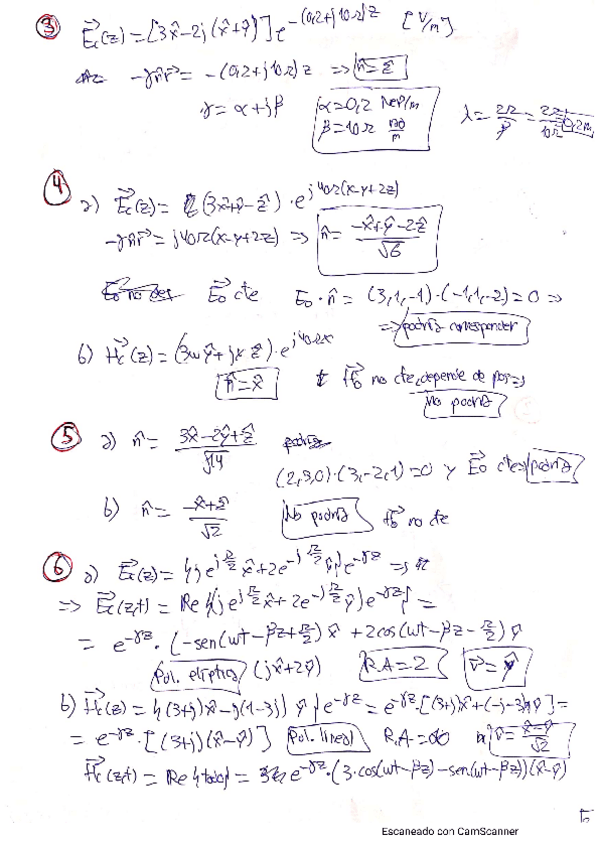 ③ E⃗c(z) = [3x̂ - 2j(x̂+ŷ)] e^-(0,2+j10π)z [V/m]
-γn̂r⃗ = -(0,2+j10π)z => n̂ = ẑ
γ = α+jβ
α = 0,2 Nep/m
β = 10π rad/m
λ = 2π/β = 2π/10π = 0,2m
④
a) E⃗c(z) = (3x̂+ŷ-ẑ) · e^j40π(x-y+2z)
-γn̂r⃗ = j40π(x-y+2z) => n̂ = (-x̂+ŷ-2ẑ)/√6
E⃗o cte Eo · n̂ = (3,1,-1)·(-1,1,-2) = 0 =>
=> podría corresponder
b) H⃗c(z) = (3ωŷ+jxẑ)·e^j40πx
n̂ = x̂
H⃗o no cte, depende de pos =>
No podría
⑤ a) n̂ = (3x̂-2ŷ+ẑ)/√14
(2,3,0)·(3,-2,1) = 0 y E⃗o cte => podría
b) n̂ = (-x̂+ẑ)/√2 No podría H⃗o no cte
⑥ a) E⃗c(z) = {j e^jπ/2 x̂ + 2e^-jπ/2 ŷ} e^-γz =>
=> E⃗c(z,t) = Re{(j e^jπ/2 x̂ + 2e^-jπ/2 ŷ) e^-γz} =
= e^-γz · (-sen(wt-βz+π/2) x̂ + 2cos(wt-βz-π/2) ŷ
Pol. elíptica (jx̂+2ŷ) R.A=2 v̂ = ŷ
b) H⃗c(z) = {(3+j)x̂ - j(1-3j) ŷ} e^-γz = e^-γz · [(3+j)x̂ + (-j-3)ŷ] =
= e^-γz · [(3+j)(x̂-ŷ)] Pol. lineal R.A=∞ v̂ = (x̂-ŷ)/√2
H⃗c(z,t) = Re{todo} = e^-γz · (3·cos(wt-βz) - sen(wt-βz))(x̂-ŷ)
Escaneado con CamScanner